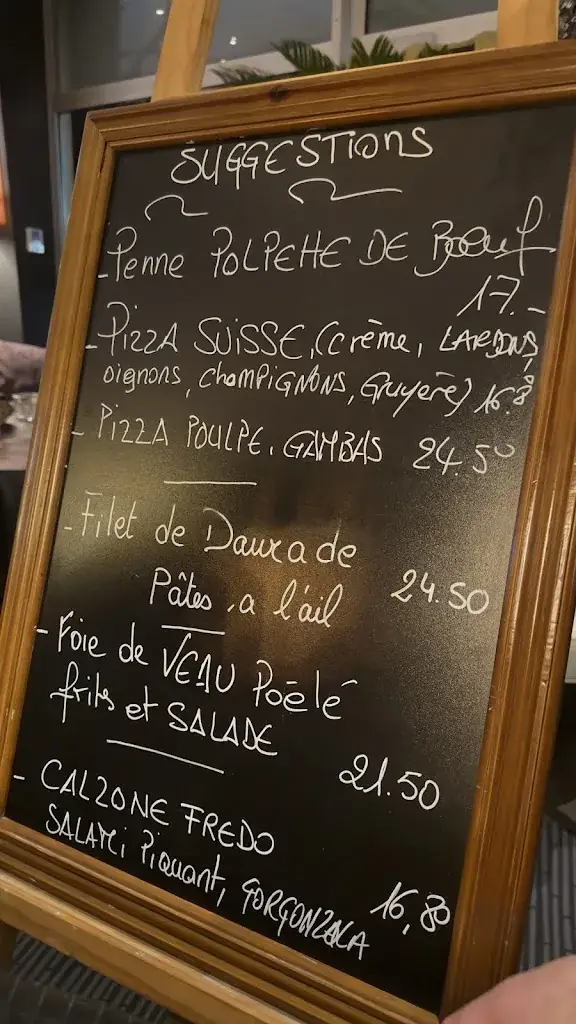 SUGGESTIONS
- Penne POLPEHE DE Bœuf
17.-
- PIZZA SUISSE, (crème, LARDONS,
oignons, CHAMPIGNONS, Gruyère) 16.8
- PIZZA POULPE, GAMBAS 24.50
- Filet de Daurade
Pâtes, a l'ail 24.50
- Foie de VEAU Poêlé
frites et SALADE
21.50
- CALZONE FREDO
SALAMi Piquant, GORGONZOLA 16,80